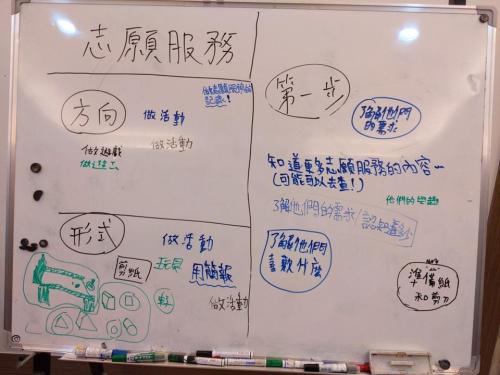 志願服務
做志願服務的
記錄！
方向
做活動
做活動
做遊戲
形式
做活動
剪紙
玩具
用簡報
做活動
第一步
了解他們
的需求
知道更多志願服務的內容
(可能可以去查！)
他們的興趣
了解他們的需求
了解他們
喜歡什麼
準備紙
和剪刀